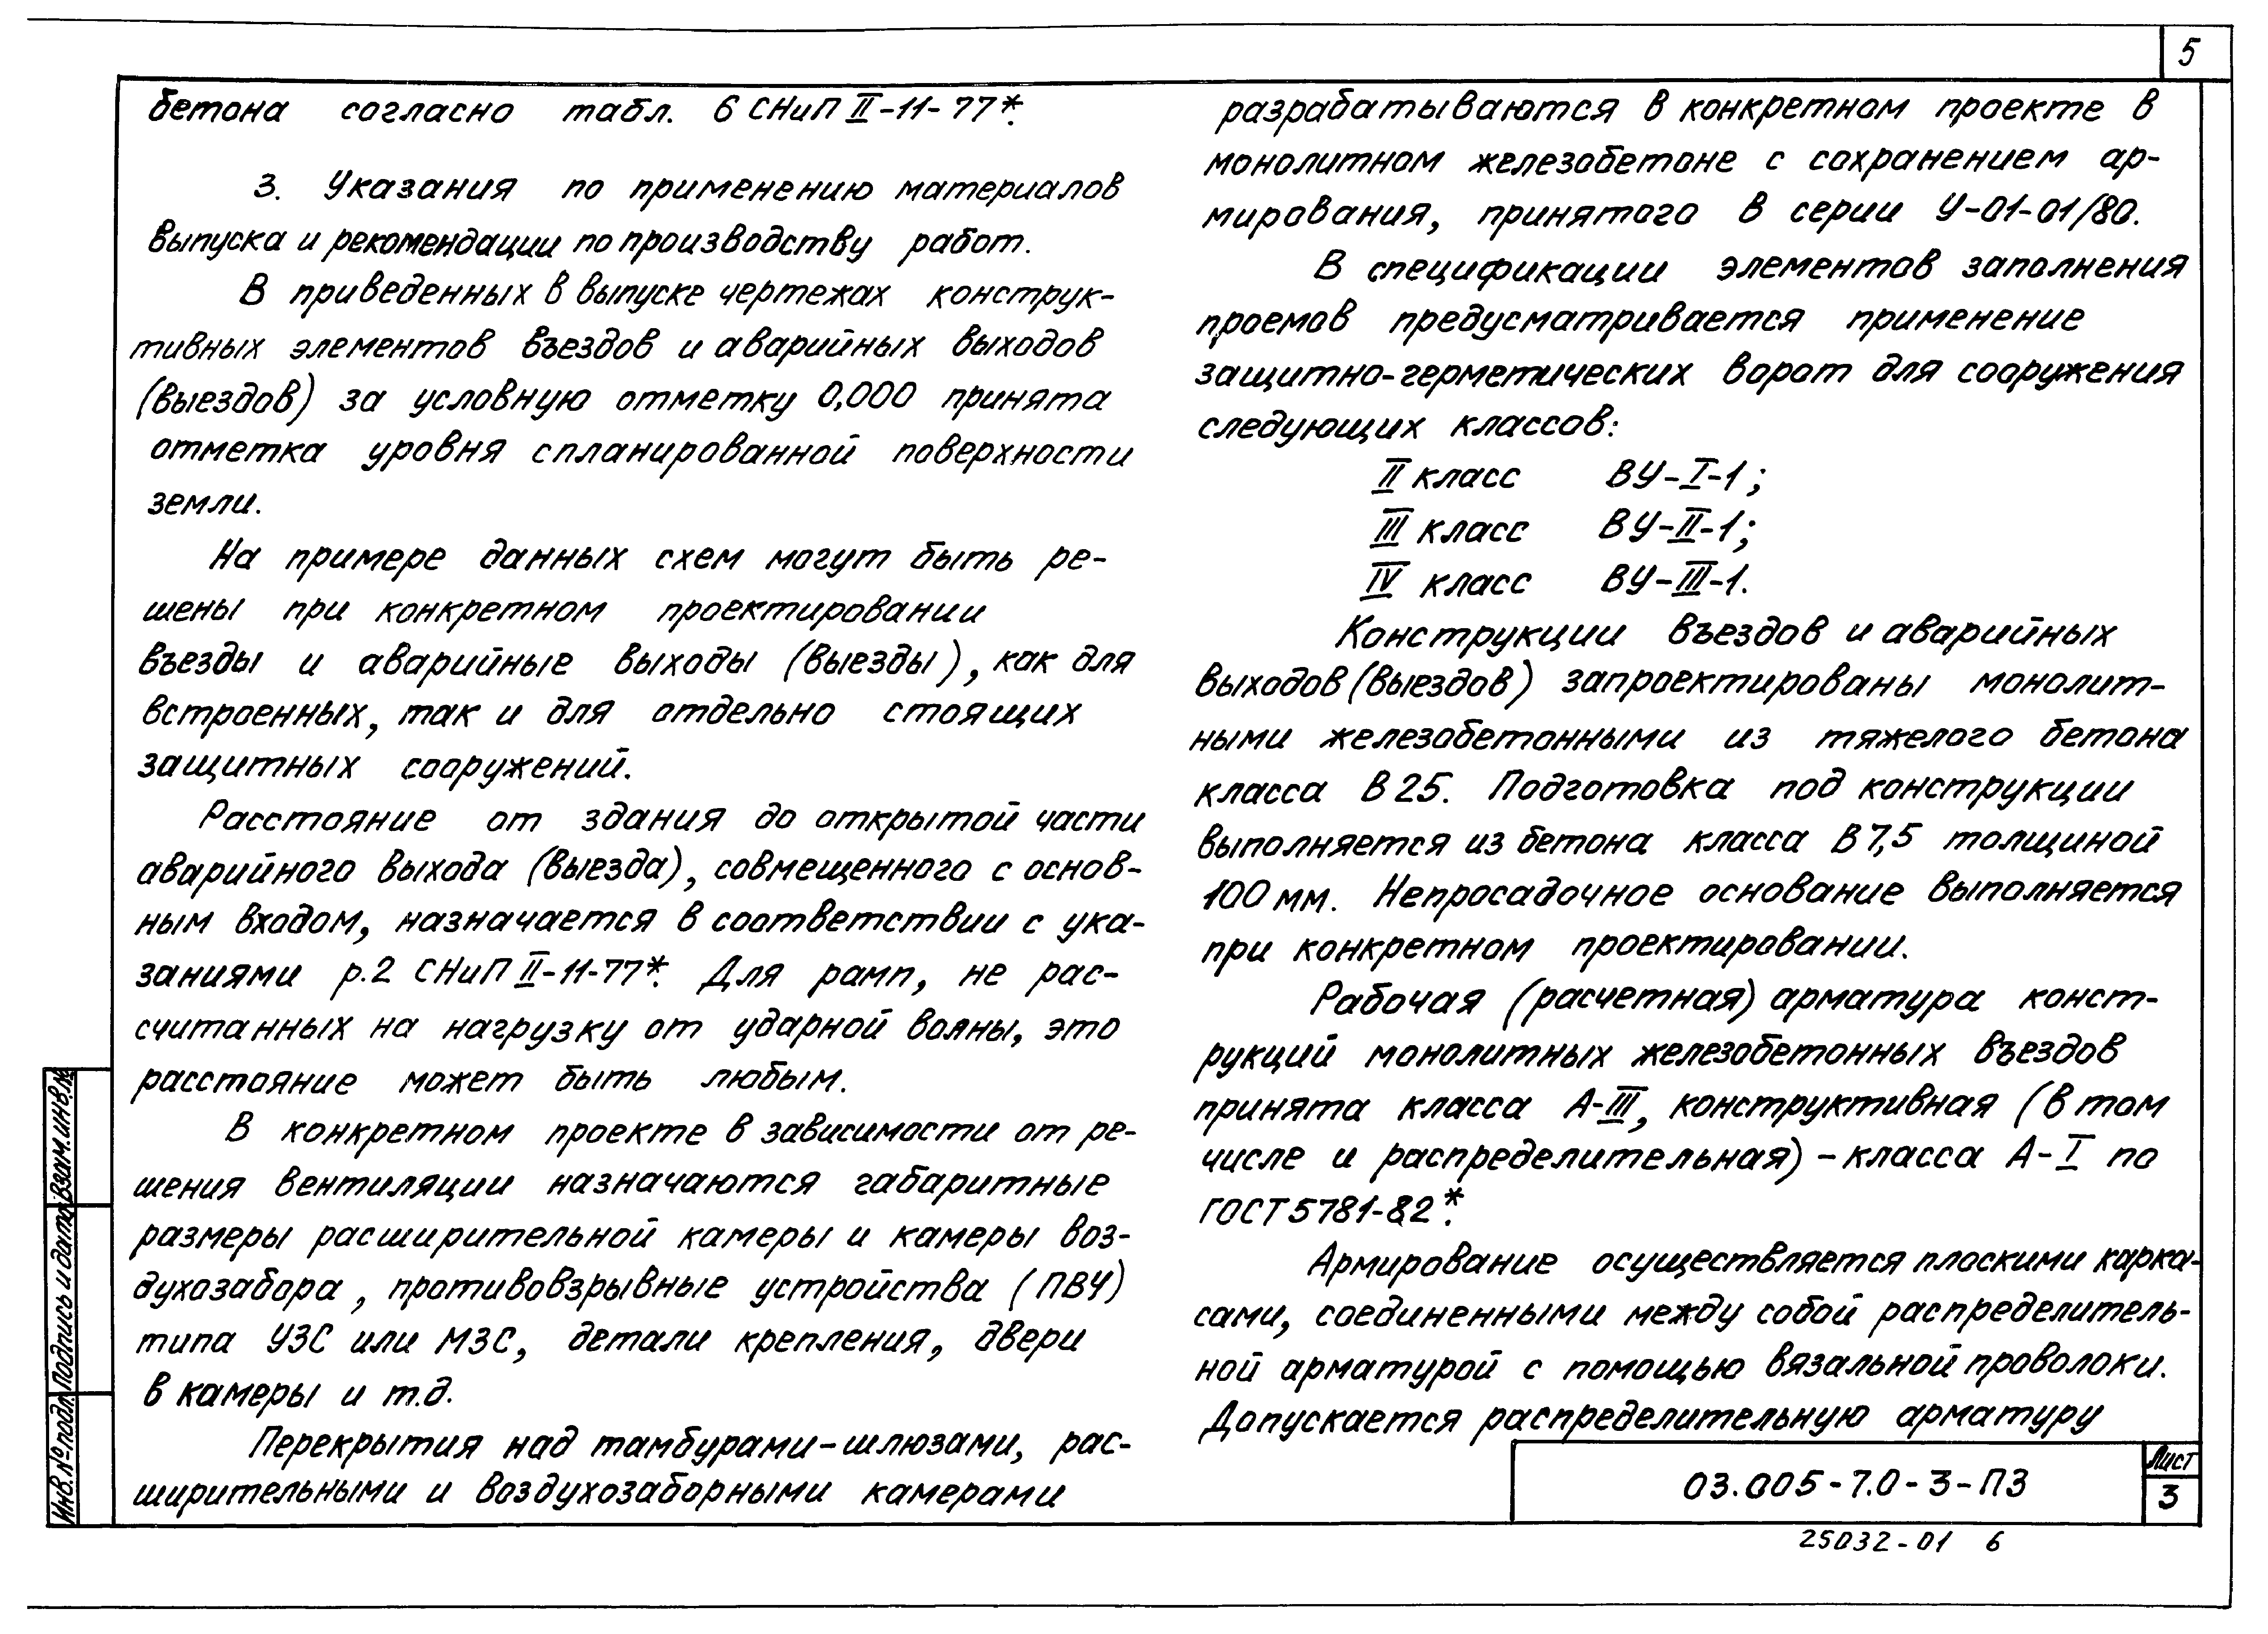 5
бетона согласно табл. 6 СНиП II-11-77*.
3. Указания по применению материалов
выпуска и рекомендации по производству работ.
В приведенных в выпуске чертежах конструк-
тивных элементов въездов и аварийных выходов
(выездов) за условную отметку 0,000 принята
отметка уровня спланированной поверхности
земли.
На примере данных схем могут быть ре-
шены при конкретном проектировании
въезды и аварийные выходы (выезды), как для
встроенных, так и для отдельно стоящих
защитных сооружений.
Расстояние от здания до открытой части
аварийного выхода (выезда), совмещенного с основ-
ным входом, назначается в соответствии с ука-
заниями р.2 СНиП II-11-77*. Для рамп, не рас-
считанных на нагрузку от ударной волны, это
расстояние может быть любым.
В конкретном проекте в зависимости от ре-
шения вентиляции назначаются габаритные
размеры расширительной камеры и камеры воз-
духозабора, противовзрывные устройства (ПВУ)
типа УЗС или МЗС, детали крепления, двери
в камеры и т.д.
Перекрытия над тамбурами-шлюзами, рас-
ширительными и воздухозаборными камерами
разрабатываются в конкретном проекте в
монолитном железобетоне с сохранением ар-
мирования, принятого в серии У-01-01/80.
В спецификации элементов заполнения
проемов предусматривается применение
защитно-герметических ворот для сооружения
следующих классов:
II класс ВУ-I-1;
III класс ВУ-II-1;
IV класс ВУ-III-1.
Конструкции въездов и аварийных
выходов (выездов) запроектированы монолит-
ными железобетонными из тяжелого бетона
класса В25. Подготовка под конструкции
выполняется из бетона класса В7,5 толщиной
100 мм. Непросадочное основание выполняется
при конкретном проектировании.
Рабочая (расчетная) арматура конст-
рукций монолитных железобетонных въездов
принята класса А-III, конструктивная (в том
числе и распределительная) - класса А-I по
ГОСТ 5781-82*.
Армирование осуществляется плоскими карка-
сами, соединенными между собой распределитель-
ной арматурой с помощью вязальной проволоки.
Допускается распределительную арматуру
Инв.№ подл. Подпись и дата Взам.инв.№
03.005-7.0-3-ПЗ
Лист
3
25032-01 6